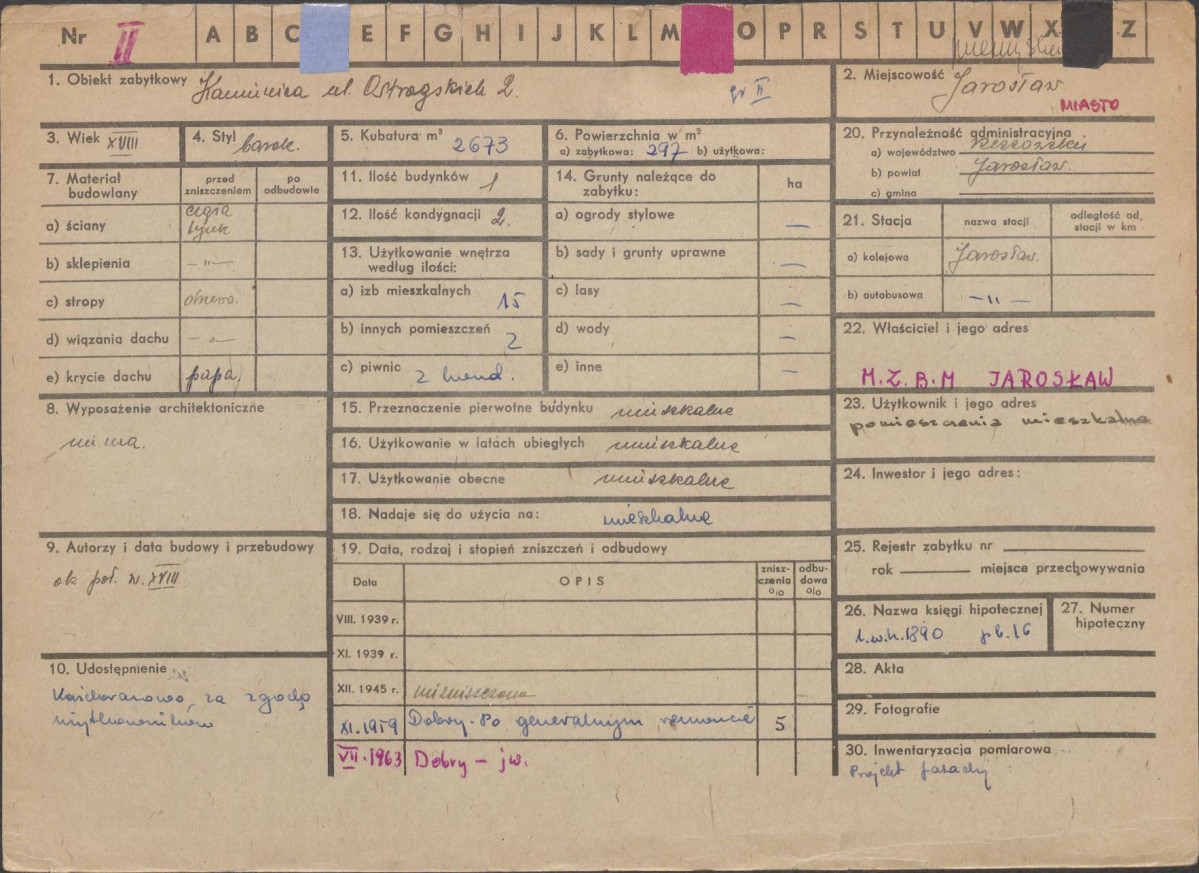 Nr II A B C E F G H I J K L M O P R S T U V W X Z
1. Obiekt zabytkowy Kamienica ul. Ostrogskich 2. gr II
2. Miejscowość Jarosław
MIASTO
3. Wiek XVIII
4. Styl barok.
5. Kubatura m³ 2673
6. Powierzchnia w m²
a) zabytkowa: 297 b) użytkowa:
20. Przynależność administracyjna
a) województwo Rzeszowskie
b) powiat Jarosław.
c) gmina
7. Materiał budowlany
przed zniszczeniem
po odbudowie
a) ściany cegła
tynk
b) sklepienia — „ —
c) stropy drewno.
d) wiązania dachu — „ —
e) krycie dachu papa.
11. Ilość budynków 1
12. Ilość kondygnacji 2.
13. Użytkowanie wnętrza
według ilości:
a) izb mieszkalnych 15
b) innych pomieszczeń 2
c) piwnic 2
14. Grunty należące do
zabytku:
ha
a) ogrody stylowe —
b) sady i grunty uprawne —
c) lasy —
d) wody —
e) inne —
21. Stacja
nazwa stacji
odległość od
stacji w km
a) kolejowa Jarosław.
b) autobusowa — „ —
22. Właściciel i jego adres
M.Z.B.M JAROSŁAW
8. Wyposażenie architektoniczne
nie ma.
15. Przeznaczenie pierwotne budynku mieszkalne
16. Użytkowanie w latach ubiegłych mieszkalne
17. Użytkowanie obecne mieszkalne
18. Nadaje się do użycia na: mieszkalne
23. Użytkownik i jego adres
pomieszczenia mieszkalne
24. Inwestor i jego adres:
9. Autorzy i data budowy i przebudowy
ok poł. w. XVIII
19. Data, rodzaj i stopień zniszczeń i odbudowy
Data
OPIS
znisz-
czenia
%
odbu-
dowa
%
VIII. 1939 r.
XI. 1939 r.
XII. 1945 r. niezniszczona
XI. 1959 Dobry. Po generalnym remoncie 5
VII. 1963 Dobry — jw.
25. Rejestr zabytku nr
rok miejsce przechowywania
26. Nazwa księgi hipotecznej
l.w.h. 1890 pb. 16
27. Numer
hipoteczny
10. Udostępnienie
za zgodą
użytkowników
28. Akta
29. Fotografie
30. Inwentaryzacja pomiarowa
Projekt fasady